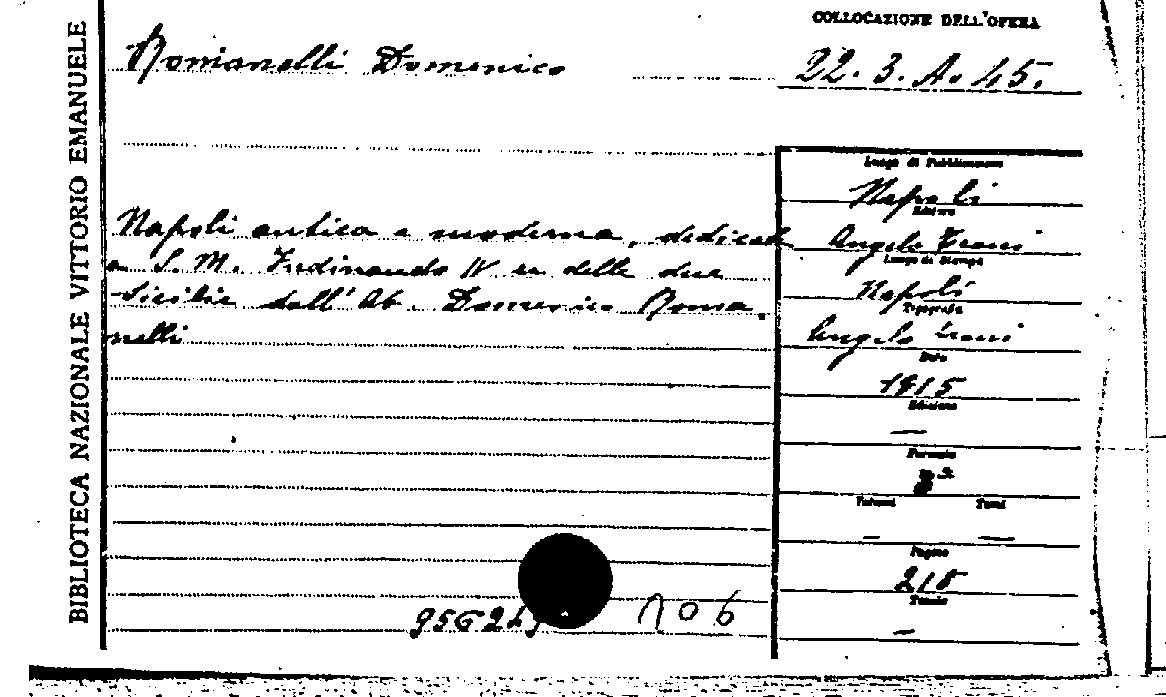 BIBLIOTECA NAZIONALE VITTORIO EMANUELE
COLLOCAZIONE DELL'OPERA
Romanelli Domenico
22. 3. A. 45.
Luogo di Pubblicazione
Napoli
Editore
Angelo Trani
Luogo di Stampa
Napoli
Tipografia
Angelo Trani
Data
1815
Edizione
—
Formato
8°
Volumi Tomi
— —
Pagine
218
Tavole
—
Napoli antica e moderna, dedicat
a S. M. Ferdinando IV re delle due
Sicilie dall'Ab. Domenico Roma,
nelli
95624
106